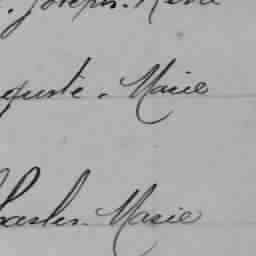 . Joseph. René
guste. Marie
harles. Marie